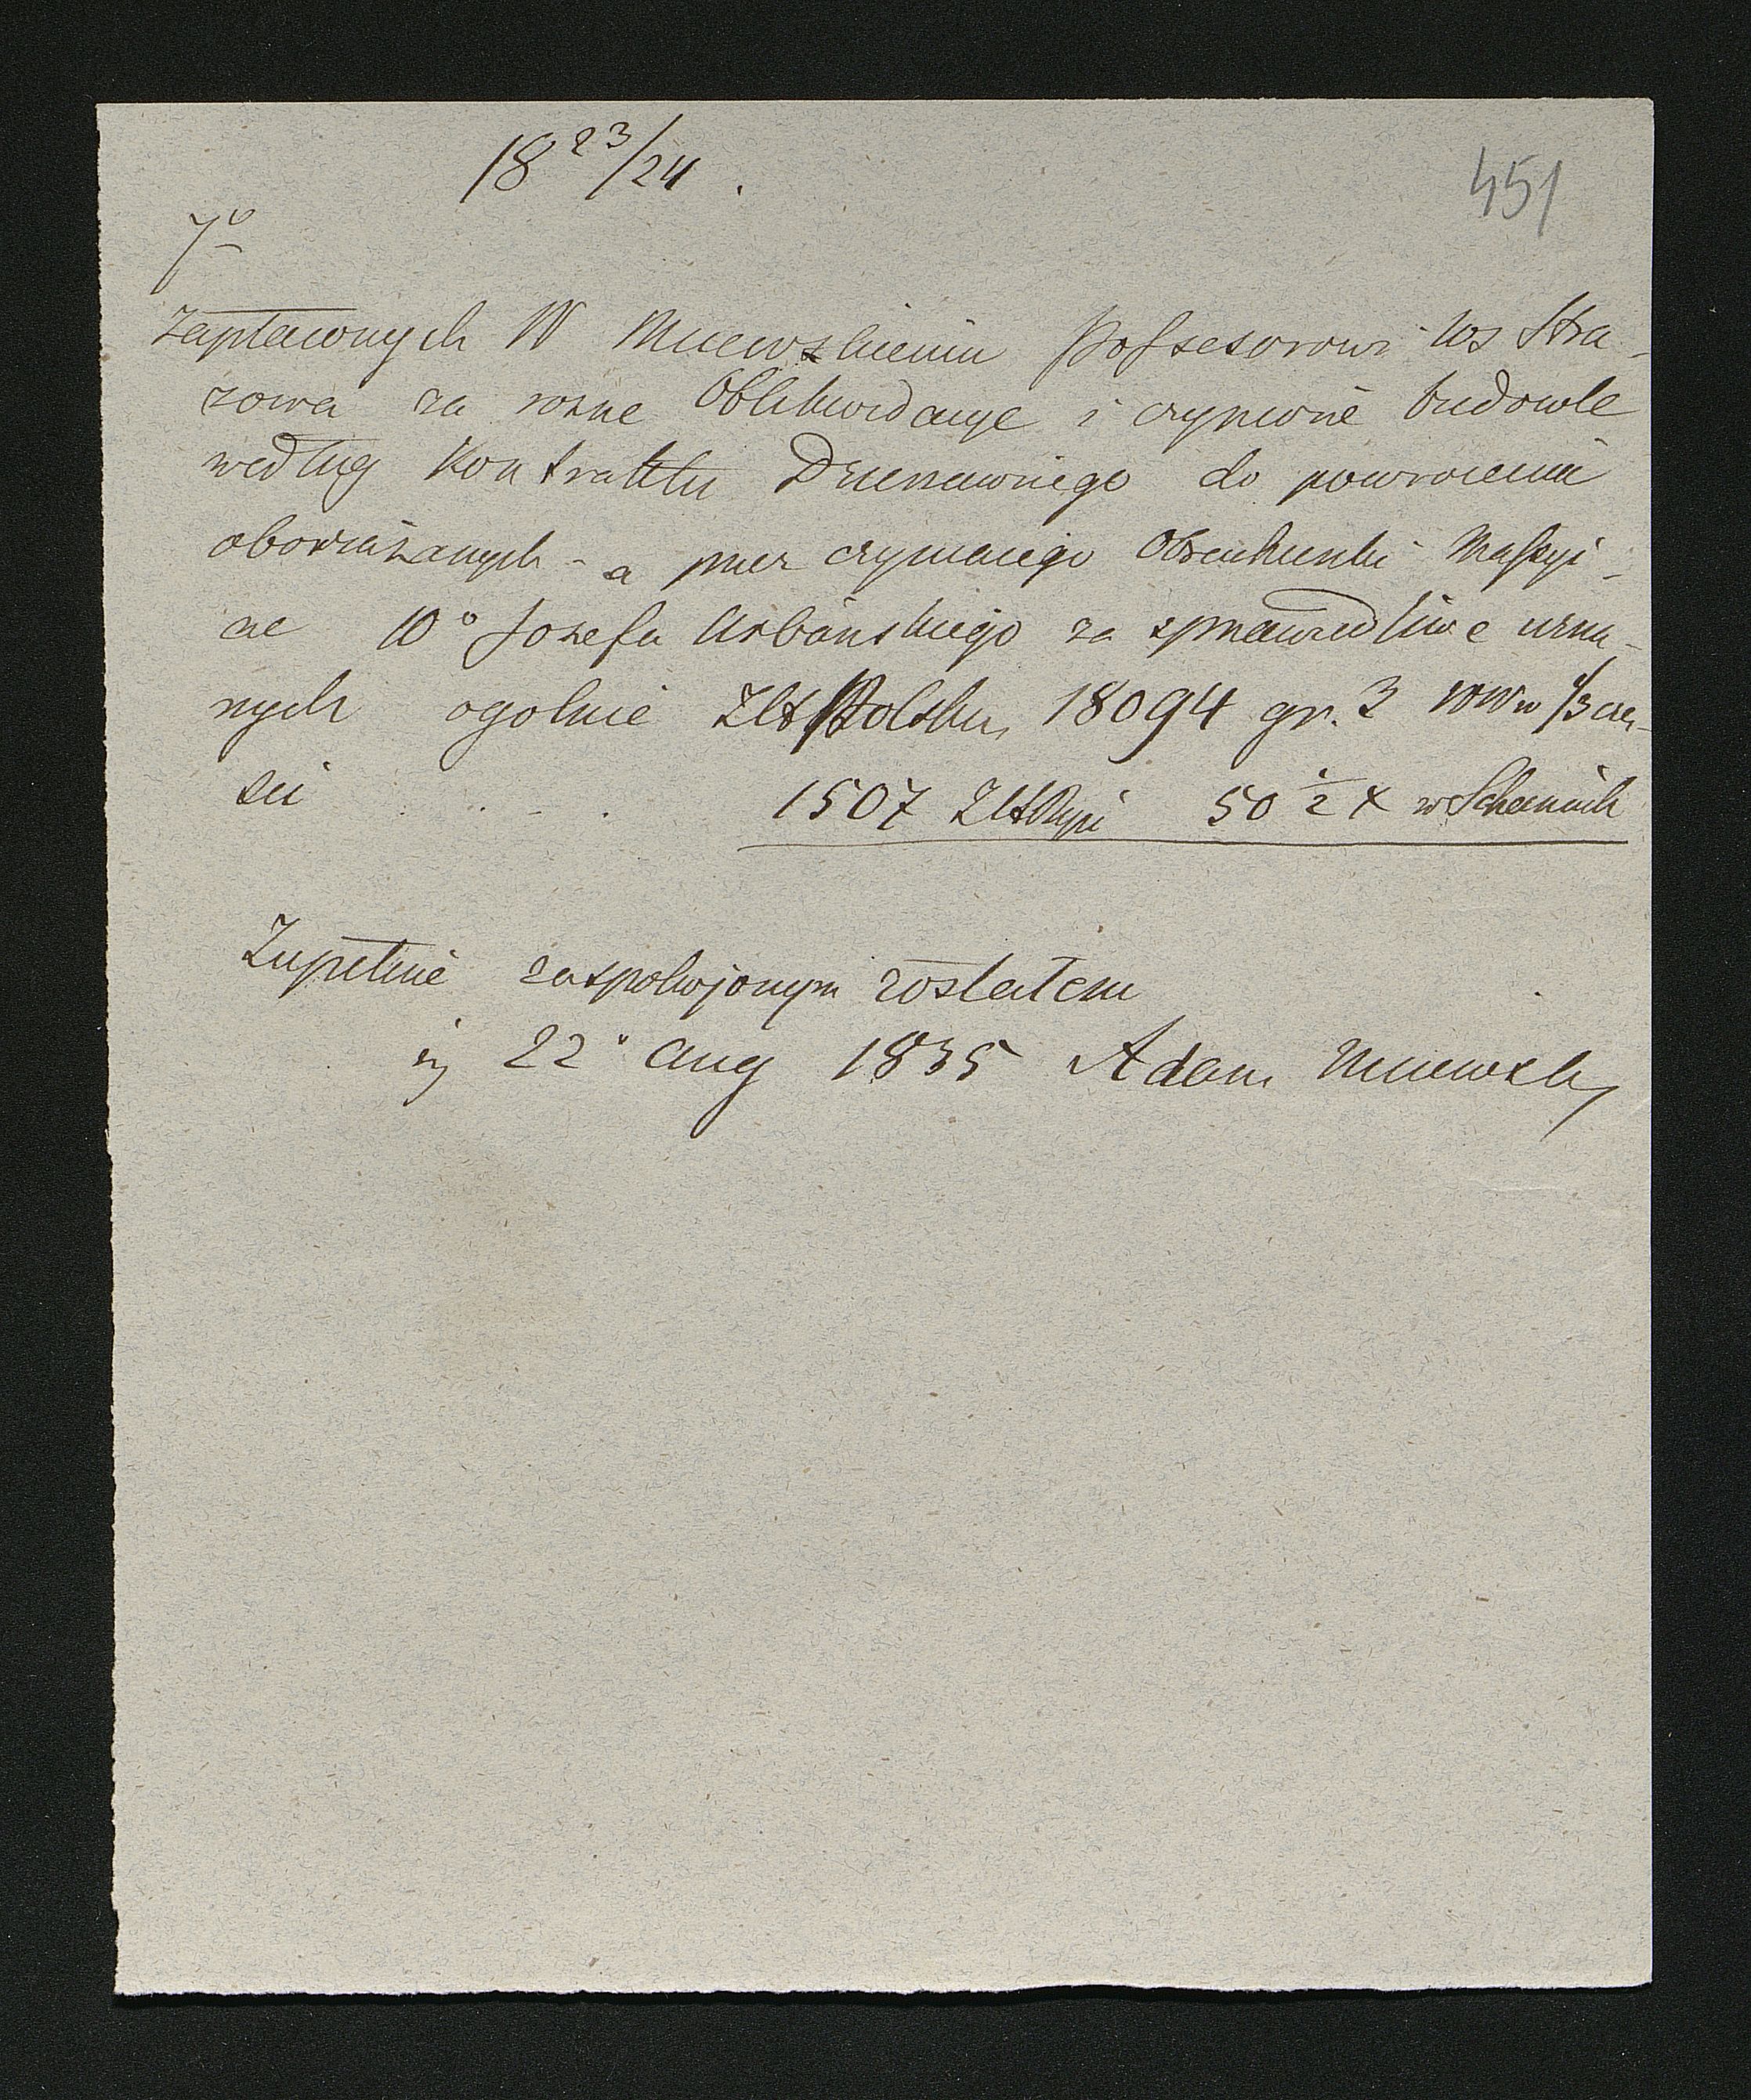 18 23/24 .
451
7o
Zapłaconych W Mniewskiemu Possesorowi ws Stra-
zowa za rożne Oblikwidacye i czynione budowle
według Kontraktu Dzierzawnego do powrocenia
obowiązanych - a przez czyniącego Obrachunki Massyi
ac Wo Jozefa Urbanskiego za sprawiedliwe uzna-
nych ogolnie Złt Polskic 18094 gr. 3 w 1/3 czę-
sci . . . 1507 Złt Ryń 50 1/2 x w Scheinach
Zupełnie zaspokojonym zostałem
22o Aug 1835 Adam Mniewski